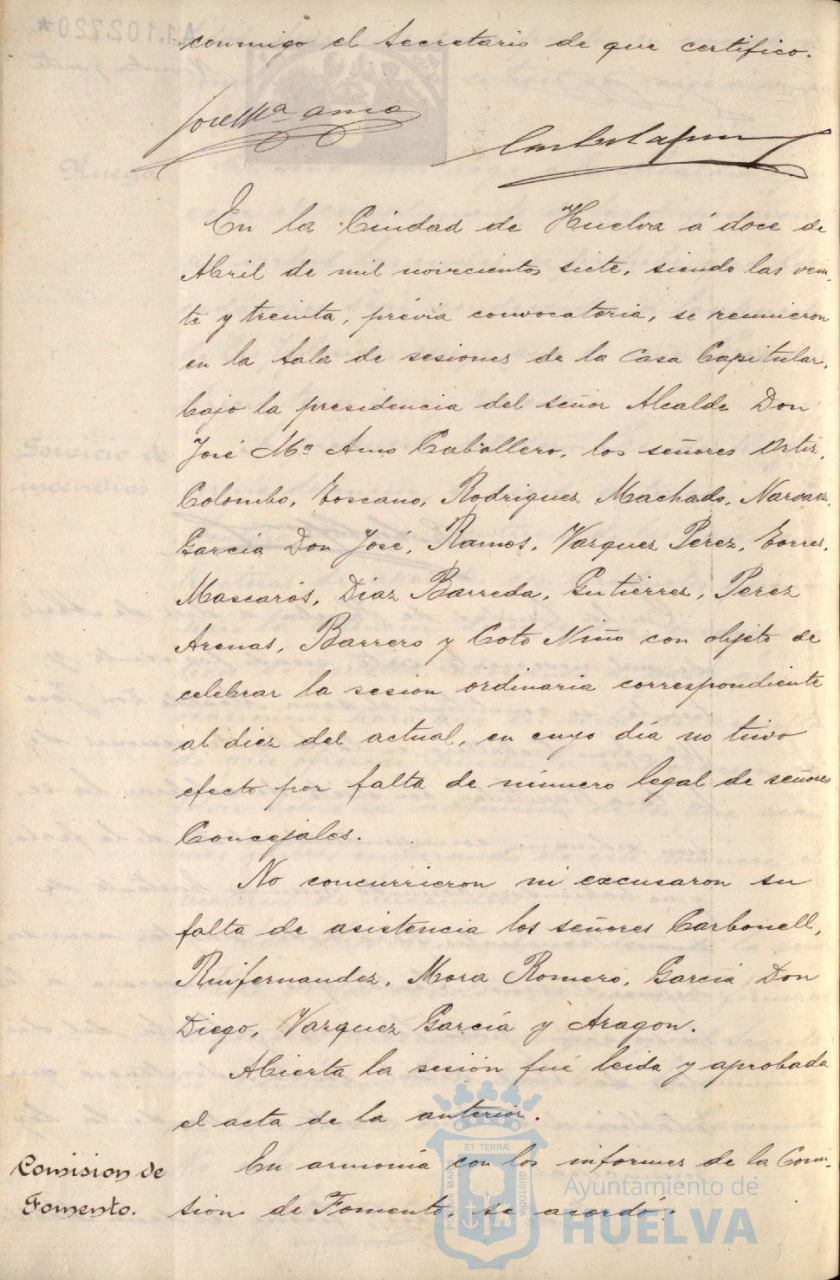 conmigo el Secretario de que certifico.
José Mª Amo
En la Ciudad de Huelva á doce de
Abril de mil novecientos siete, siendo las vein-
te y treinta, prévia convocatoria, se reunieron
en la Sala de sesiones de la Casa Capitular,
bajo la presidencia del señor Alcalde Don
José Mª Amo Caballero, los señores Ortiz,
Colombo, Toscano, Rodriguez Machado, Narvaez,
García Don José, Ramos, Vazquez Perez, Torres,
Mascarós, Diaz Barreda, Gutierrez, Perez
Arenas, Barrero y Coto Niño con objeto de
celebrar la sesion ordinaria correspondiente
al diez del actual, en cuyo día no tuvo
efecto por falta de número legal de señores
Concejales.
No concurrieron ni excusaron su
falta de asistencia los señores Carbonell,
Ruifernandez, Mora Romero, García Don
Diego, Vazquez García y Aragon.
Abierta la sesión fué leida y aprobada
el acta de la anterior.
Comision de
Fomento.
En armonía con los informes de la Comi-
sion de Fomento, se acordó:
PORTUS MARIS ET TERRÆ CUSTODIA
Ayuntamiento de
HUELVA